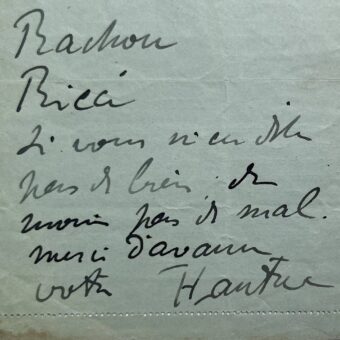 Rachou
Ricci
Si vous n'en dites
pas de bien, du
moins pas de mal.
merci d'avance
votre Hantre